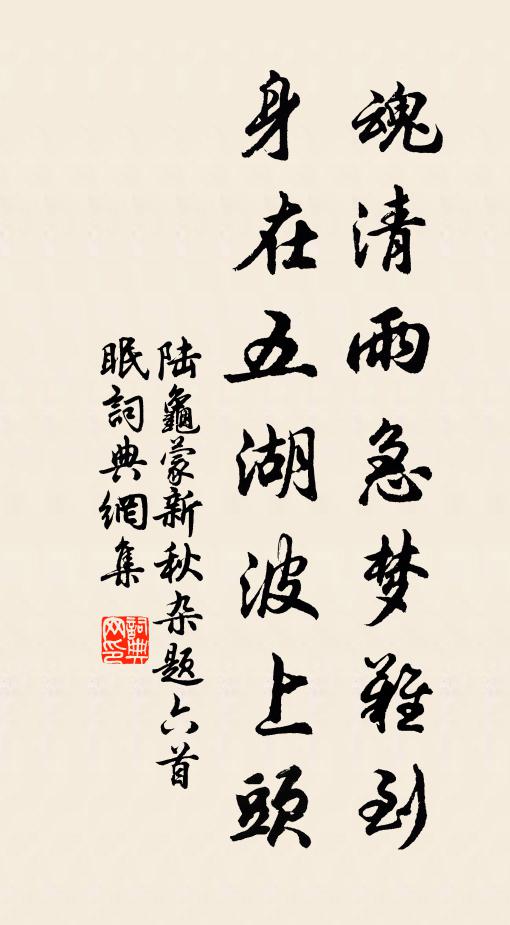 魂清雨急梦難到
身在五湖波上頭
陆龜蒙新秋杂题六首
眠詞典網集
詞典网印